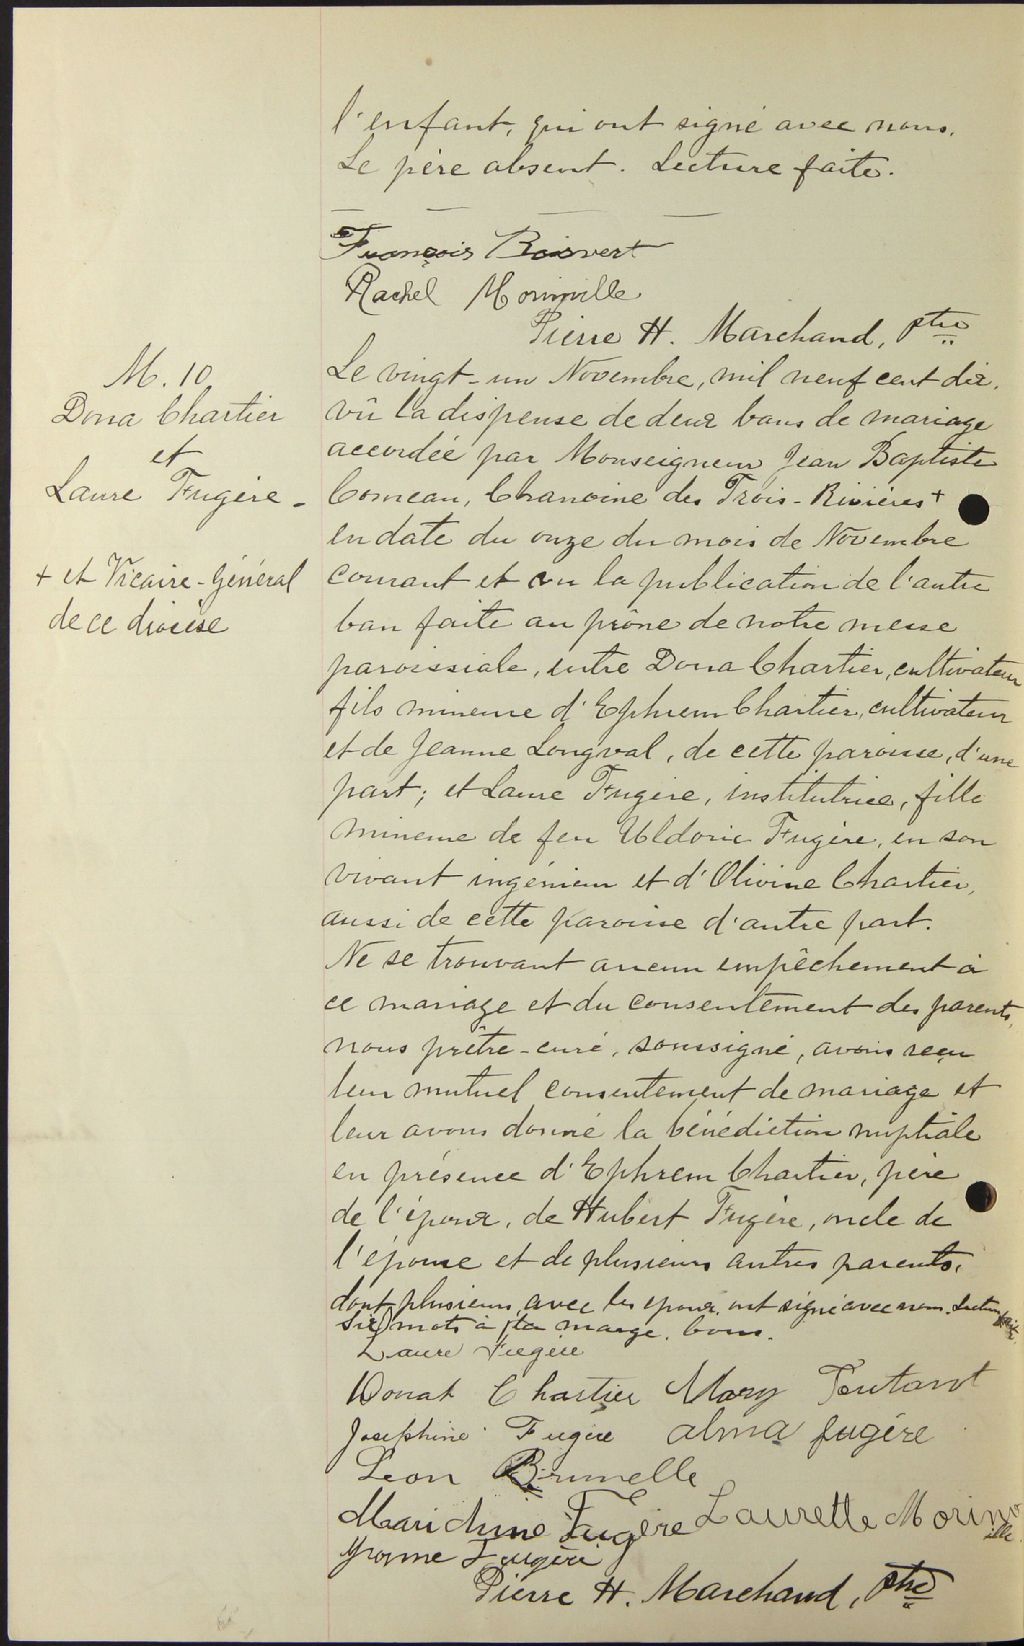 l'enfant, qui ont signé avec nous.
Le père absent. Lecture faite.
François Boisvert
Rachel Morinville
Pierre H. Marchand, ptre
M. 10
Dona Chartier
et
Laure Fugère -
+ et Vicaire-Général
de ce diocèse
Le vingt-un Novembre, mil neuf cent dix,
vû la dispense de deux bans de mariage
accordée par Monseigneur Jean Baptiste
Comeau, Chanoine des Trois-Rivières +
en date du onze du mois de Novembre
courant et vu la publication de l'autre
ban faite au prône de notre messe
paroissiale, entre Dona Chartier, cultivateur
fils mineure d'Ephrem Chartier, cultivateur
et de Jeanne Longval, de cette paroisse, d'une
part; et Laure Fugère, institutrice, fille
mineure de feu Uldoric Fugère, en son
vivant ingénieur et d'Olivine Chartier,
aussi de cette paroisse d'autre part.
Ne se trouvant aucun empêchement à
ce mariage et du consentement des parents,
nous prêtre-curé, soussigné, avons reçu
leur mutuel consentement de mariage et
leur avons donné la bénédiction nuptiale
en présence d'Ephrem Chartier, père
de l'époux, de Hubert Fugère, oncle de
l'épouse et de plusieurs autres parents,
dont plusieurs, avec les époux, ont signé avec nous. Lecture faite.
Six mots à la marge, bons.
Laure Fugère
Donat Chartier Mary Toutant
Josephine Fugère alma fugère
Leon Brunelle
Fugère Laurette Morinville
Yvonne Fugère
Pierre H. Marchand, ptre